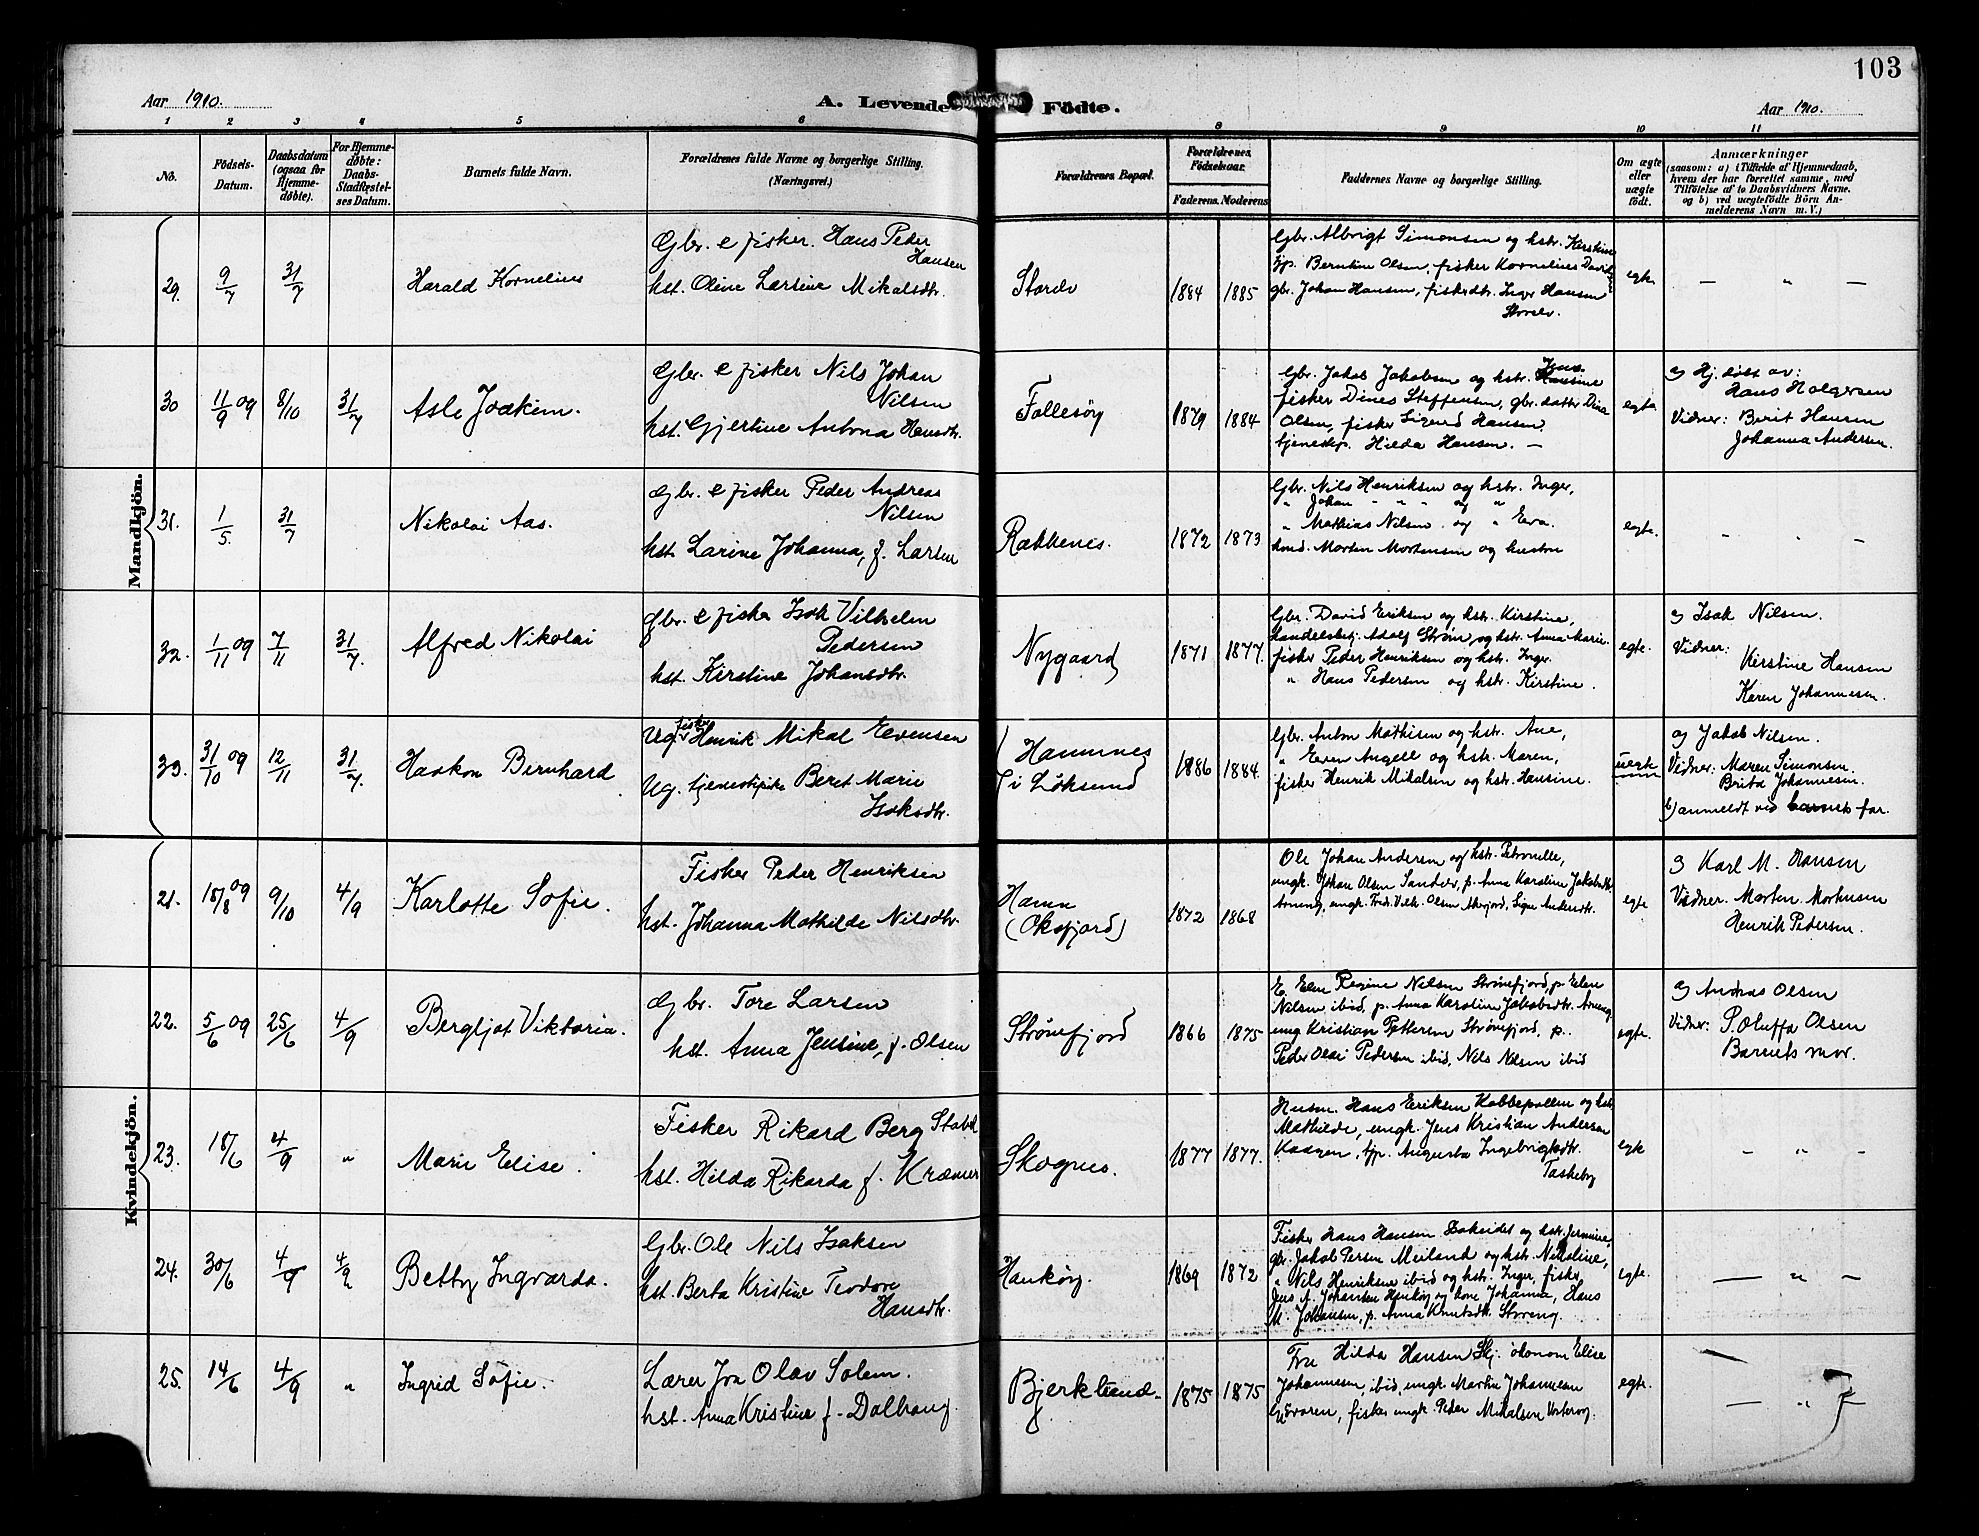 103
Aar 1910.
A. Levende Födte.
Aar 1910.
1 2 3 4 5 6 8 9 10 11
No.
Födsels-Datum.
Daabsdatum (ogsaa för Hjemme-døbte).
For Hjemme-døbte: Daabs-Stadfæstel-ses Datum.
Barnets fulde Navn.
Forældrenes fulde Navne og borgerlige Stilling. (Næringsvei.)
Forældrenes Bopæl.
Forældrenes Födselsaar.
Faderens. Moderens
Faddernes Navne og borgerlige Stilling.
Om ægte eller uægte födt.
Anmærkninger
(saasom: a) i Tilfælde af Hjemmedaab, hvem der har forrettet samme, med Tilföielse af to Daabsvidners Navne, og b) ved uægtefödte Börn An-melderens Navn m. V.)
Mandkjön.
29. 9/7 31/7
Harald Kornelius
Gbr. e fisker. Hans Peder Hansen
hst. Oline Larsine Mikalsdtr.
Storelv
1884 1885
Gbr. Albrigt Simonsen og hstr. Kirstine
tjp. Berntine Olsen, fisker Kornelius
gbr. Johan Hansen, fiskerdtr. Inger Hansen
Storelv.
egte
— " —
30 11/9 09 8/10 31/7
Asle Joakim.
Gbr. e fisker Nils Johan Nilsen
hst. Gjertine Antona Hansdtr.
Follesöy
1879 1884
Gbr. Jakob Jakobsen og hstr.
fisker Dines Steffensen, gbr. datter Dina
Olsen, fisker Sigurd Hansen
tjenestp. Hilda Hansen. —
egte
a) Hj. döbt av:
Hans Holgersen
Vidner: Berit Hansen
Johanna Andersen.
31. 1/5. 31/7
Nikolai Aas.
Gbr. e fisker Peder Andreas Nilsen
hst. Larine Johanna, f. Larsen
Rakkenes.
1872 1873
Gbr. Nils Henriksen og hstr. Inger,
" Johan " " og "
" Mathias Nilsen og " Eva.
Morten Mortensen og hustru
egte.
32. 1/11 09 7/11 31/7.
Alfred Nikolai
Gbr. e fisker Isak Vilhelm Pedersen
hst. Kirstine Johansdtr.
Nygaard
1871 1877.
Gbr. David Eriksen og hstr. Kirstine,
Handelsbetj. Adolf Ström, og hstr. Anna Marie
fisker Peder Henriksen og hstr. Inger
" Hans Pedersen og hstr. Kirstine.
egte.
a) Isak Nilsen.
Vidner:
Kirstine Hansen
Karen Johannesen.
33. 31/10 09 12/11 31/7.
Haakon Bernhard
Ug. fisker Henrik Mikal Evensen
Ug. tjenestepike Beret Marie Isaksdtr.
Hamnes i Löksund
1886 1884.
Gbr. Anton Mathisen og hstr. Ane,
" Even Angell og hstr. Maren,
fisker Henrik Mikalsen og hstr. Hansine.
uegte
a) Jakob Nilsen.
Vidner: Maren Simonsen.
Brita Johannesen.
b) anmeldt ved barnets far.
Kvindekjön.
21. 15/8 09 9/10 4/9
Karlotte Sofie.
Fisker Peder Henriksen
hst. Johanna Mathilde Nilsdtr.
Hamn (Oksfjord)
1872 1868
Ole Johan Andersen og hstr. Petronelle,
ungk. Johan Olsen Sandelv, p. Anna Karoline Jakobsdtr.
Arnöng, ungk. Fred. Vilh. Olsen
egte
a) Karl M. Hansen
Vidner. Morten Mortensen
Henrik Pedersen.
22. 5/6 09 25/6 4/9
Bergljot Viktoria.
Gbr. Tore Larsen
hst. Anna Jensine, f. Olsen
Strömfjord
1866 1875
E. Elen Regine Nilsen Strömfjord, p. Elen
Nilsen ibid, p. Anna Karoline Jakobsdtr.
ung Kristian Pettersen Strömfjord, p.
Peder Olai Pedersen ibid, Nils Nilsen ibid
egte.
a) Andreas Olsen
Vidner: P. Oluffa Olsen
Barnets mor.
23. 18/6 4/9 "
Marie Elise.
Fisker Rikard Berg
hst. Hilda Rikarda f. Kræmer
Skognes.
1877 1877.
Husm. Hans Eriksen Kobbepollen og hstr.
Mathilde, ungk. Jens Kristian Andersen
Kaagen, tjp. Augusta Ingebrigtsdtr.
Taskeby
egte
– " –
24. 30/6 4/9 4/9
Betty Ingvarda.
Gbr. Ole Nils Isaksen
hst. Berta Kristine Teodora Hansdtr.
Haukøy.
1869 1872
Fisker Hans Hansen og hstr.
gbr. Jakob Persen Meiland og hstr. Nikoline,
" Nils Henriksen ibid og hstr. Inger, fisker
Jens A. Johansen Haukøy og kone Johanna, Hans
M. Johansen, p. Anna Knutsdtr. Storeng.
egte.
— " –
25. 14/6 4/9 "
Ingrid Sofie.
Lærer Olav Solem.
hst. Anna Kristine f. Dalhaug.
Bjerkstrand.
1875 1875
Fru Hilda Hansen Skj. ökonom Elise
Johannessen, ibid, ungk. Martin Johannesen
fisker ungk. Peder Mikalsen
egte.
— " —